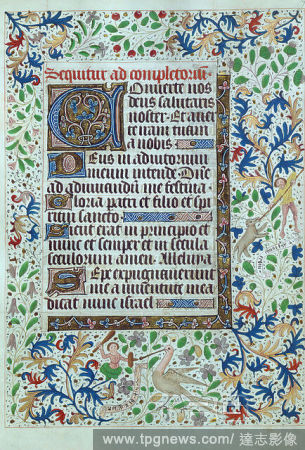 Sequitur ad completorium
Converte nos
deus salutaris
noster. Et averte
iram tuam
a nobis.
Deus in adiutorium
meum intende Domine
ad adiuvandum me festina
Gloria patri et filio et spi
ritui sancto.
Sicut erat in principio et
nunc et semper et in secula
seculorum amen. Alleluya
Sepe expugnaverunt
me a iuventute mea
dicat nunc israel
www.tpgnews.com/ 達志影像